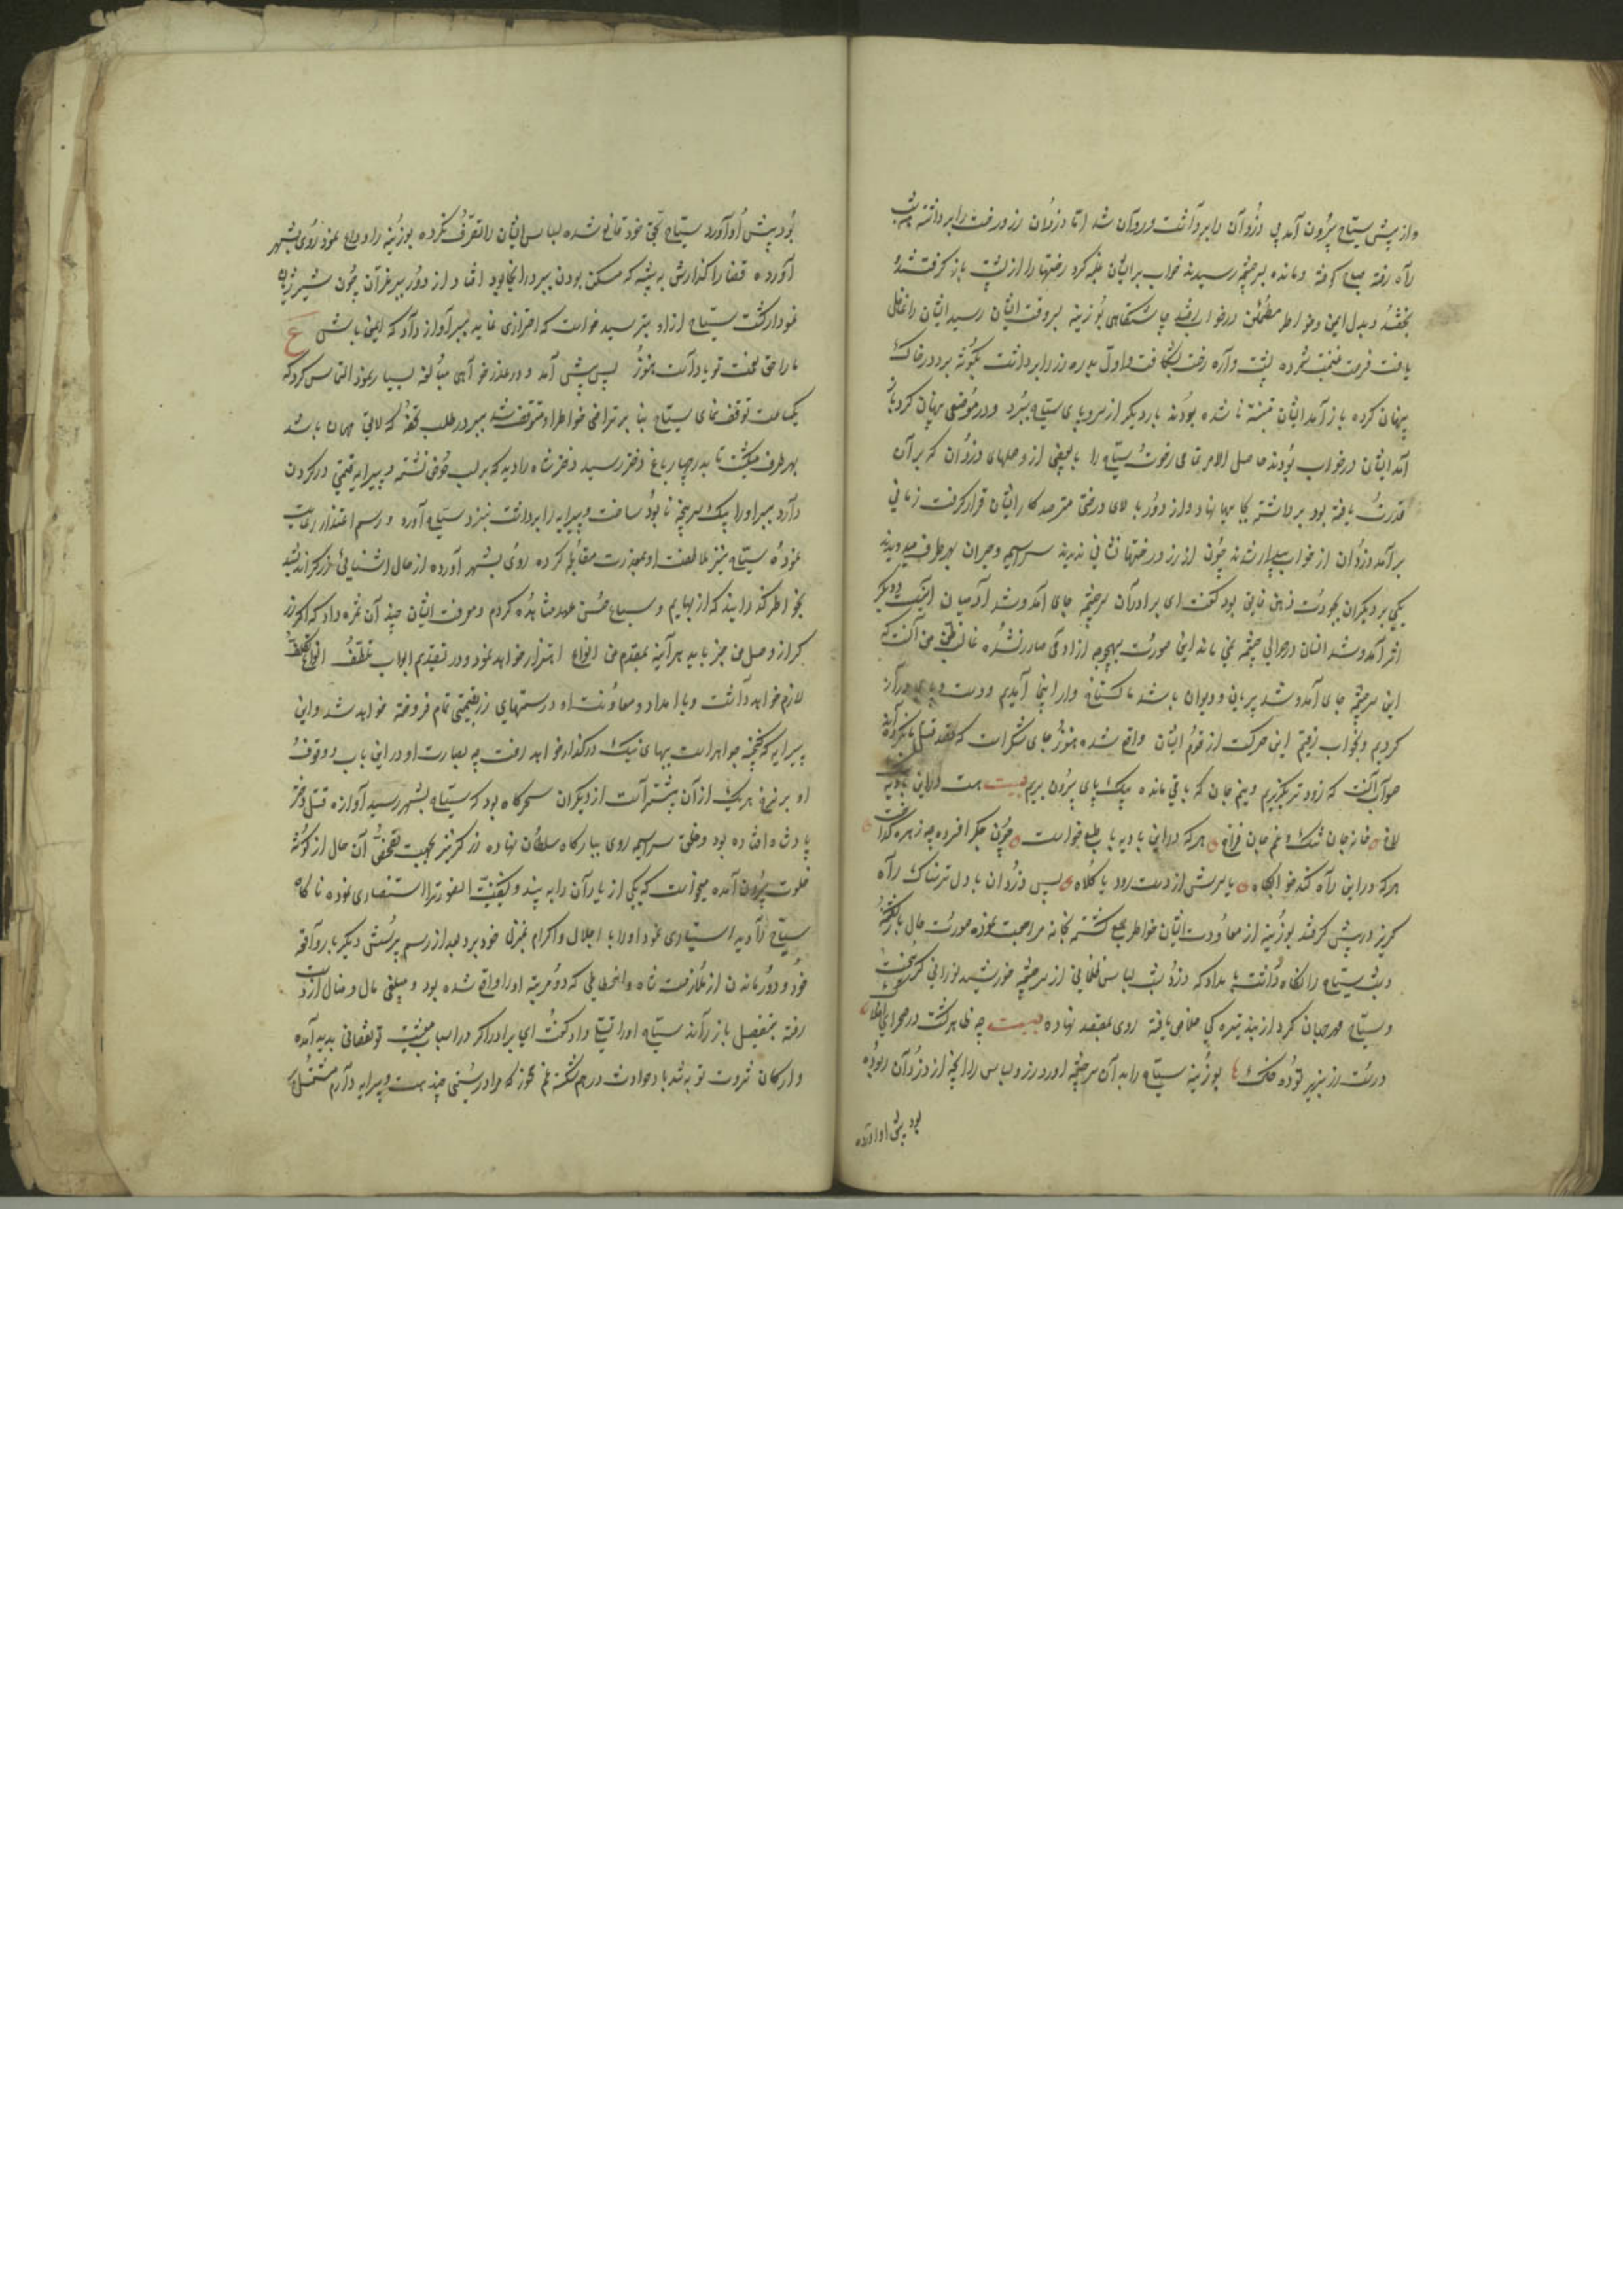 و از پیش سیاح بیرون آمد پی دزدان را برداشت و روان شد اما دزدان زر و رخت را برداشته شب
راه رفته صباح کوفته و مانده بسر چشمه رسیدند خواب بر ایشان غلبه کرد رختها را از پشت باز گرفتند و
بخفتند و بدل ایمن و خواطر مطمئن در خواب رفتند چاشتگاهی بوزینه بسر وقت ایشان رسید ایشان را غافل
یافت فرصت غنیمت شمرده پشتواره رخت بشکافت و اول بدره زر را برداشت بگوشه برد در خاک
پنهان کرده باز آمد ایشان متنبه ناشده بودند بار دیگر از سر و پای سیاح ببرد و در موضعی پنهان کرد باز
آمد ایشان در خواب بودند حاصل الامر تمامی رخوت سیاح را با بعضی از وصلهای دزدان که بر آن
قدرت یافته بود برداشته بجا پنهان نهاد و از دور بالای درختی مترصد کار ایشان قرار گرفت زمانی
برآمد دزدان از خواب بیدار شدند چون از زر و رختها نشانی ندیدند سراسیمه و حیران بهر طرف میدویدند
یکی بر دیگران بجودت ذهن فایق بود گفت ای برادران سر چشمه جای آمد و شد آدمیان نیست و دیگر
اثر آمد و شد انسان در حوالی چشمه نمی ماند اینجا صورت بهیچوجه از آدمی صادر نشده غالب ظن من آنست که
این سر چشمه جای آمد و شد پریان و دیوان باشد ما گستاخ وار اینجا آمدیم و دست و پای دراز
کردیم و بخواب رفتیم این حرکت از قوم ایشان واقع شده هنوز جای شکر است که قصد قتل ما نکرده اند
صواب آنست که زودتر بگریزیم و نیم جان که باقی مانده بیک پای بیرون بریم بیت هست در این بادیه
لاف خانه جان تنگ و غم جان فراخ هر که در این بادیه با طبع خواست چون جگر افسرده چه زهره گداخت
هر که در این راه کند خوابگاه یا سرش از دست رود یا کلاه پس دزدان با دل ترسناک راه
گریز در پیش گرفتند بوزینه از معاودت ایشان خواطر جمع گشته بخانه مراجعت نموده صورت حال باز گفت
و شب سیاح را نگاه داشت بامداد که دزد شب لباس ظلمانی از سر چشمه خورشید نورانی گریخت
و سیاح مهر جهان گرد از بند تیره گی خلاصی یافته روی بمقصد نهاده بیت چه ظاهر گشت در صحرای افلاک
درست زر بزیر توده خاک بوزینه سیاح را به آن سر چشمه آورد زر و لباس را با آنچه از دزدان ربوده
بود پیش او آورده
بود پیش او آورد سیاح بحق خود قانع شده لباس ایشان را تصرف نکرده بوزینه را وداع نمود روی بشهر
آورده قضا را گذارش به بیشه که مسکن بودن ببر در آنجا بود افتاد از دور ببر غران چون شیر ژیان
نمودار گشت سیاح از او بترسید خواست که احترازی نماید ببر آواز داد که ایمن باش ع
ما را حق نعمت تو یاد است هنوز پس پیش آمد و در عذر خواهی مبالغه بسیار نمود التماس کرد که
یکساعت توقف نمای سیاح بنابر تراضی خواطر او متوقف شد ببر در طلب تحفهٔ که لایق مهمان باشد
بهر طرف میگشت تا بدر چهار باغ دختر رسید دختر شاه را دید که بر لب حوض نشسته و پیرایه قیمتی در گردن
دارد ببر او را بیک سرپنجه نابود ساخت و پیرایه را برداشت نزد سیاح آورد و رسم اعتذار رعایت
نموده سیاح نیز ملاطفت او بمعذرت مقابله کرده روی بشهر آورده از حال آشنائی زرگر اندیشید
بخواطر گذرانید که از بهایم و سباع حسن عهد مشاهده کردم و معرفت ایشان چندان ثمره داد که اگر زر
گر از وصل من خبر یابد هر آینه بمقدم من انواع اهتزاز خواهد نمود و در تقدیم ابواب تلطف انواع تکلف
لازم خواهد داشت و با امداد و معاونت او درستهای زر بقیمتی تمام فروخته خواهد شد و این
پیرایه که گنجینه جواهر است ببهای نیک در گذار خواهد رفت چه بصارت او در این باب و وقوف
او بر نرخ هر یک از آن بیشتر است از دیگران سحرگاه بود که سیاح بشهر رسید آوازه قتل دختر
پادشاه افتاده بود و خلق سراسیمه روی ببارگاه سلطان نهاده زرگر نیز بجهت تفحص آن حال از گوشه
خلوت بیرون آمده میخواست که یکی از یاران را به بیند و کیفیت استفساری نموده ناگاه
سیاح را دید استبشاری نمود او را با اجلال و اکرام بمنزل خود برد بعد از رسم پرسش دیگر بار واقعه
خود و دور ماندن از ملازمت شاه و انحطاطی که در مرتبه او را واقع شده بود و مبلغی مال و منال از دست
رفته بتفصیل باز راند سیاح او را تسلی داد گفت ای برادر اگر در اسباب معیشت تو نقصانی پدید آمده
و ارکان ثروت تو به تندباد حوادث در هم شکسته غم مخور که مرا درستی چند هست و پیرایه دارم مشتمل بر